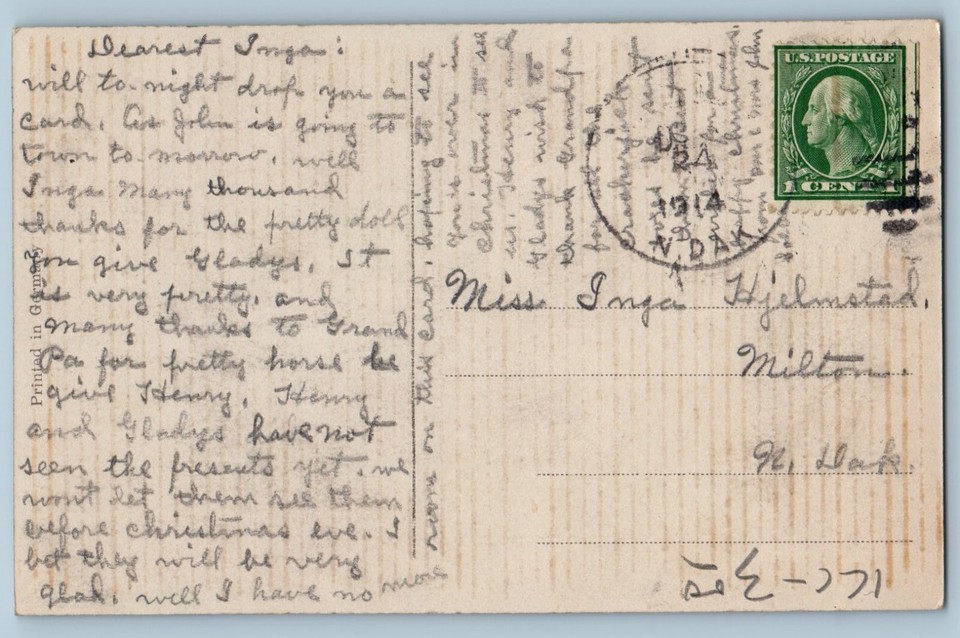 Dearest Inga:
will to-night drop you a
card. As John is going to
town to-morrow, well
Inga Many thousand
thanks for the pretty doll
you give Gladys. It
is very pretty. and
many thanks to Grand
Pa for pretty horse he
give Henry. Henry
and Gladys have not
seen the presents yet. we
wont let them see them
before christmas eve. I
bet they will be very
glad. well I have no more
room on this card, hoping to see
you's over in
christmas to see
us. Henry and
Gladys wish to
thank Grandpa
for the
Happy christmas.
from our & Mrs John
U.S. POSTAGE
1 CENT
1914
N. DAK
Miss Inga Hjelmstad.
Milton.
N. Dak.
Printed in Germany